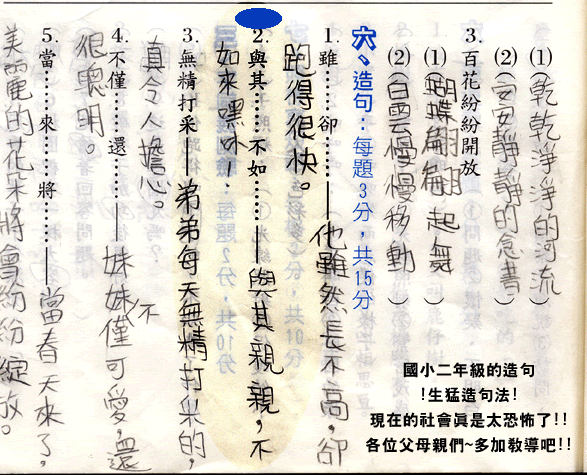 (1)(乾乾淨淨的河流)
(2)(安安靜靜的念書)
3.百花紛紛開放
(1)(蝴蝶翩翩起舞)
(2)(白雲慢慢移動)
六、造句：每題3分，共15分
1.雖……卻……——他雖然長不高，卻
跑得很快。
2.與其……不如……——與其親親，不
如來嘿咻！
3.無精打采——弟弟每天無精打采的，
真令人擔心。
4.不僅……還……——妹妹不僅可愛，還
很聰明。
5.當……來……將……——當春天來了，
美麗的花朵將會紛紛綻放。
國小二年級的造句
!生猛造句法!
現在的社會真是太恐怖了!!
各位父母親們~多加教導吧!!